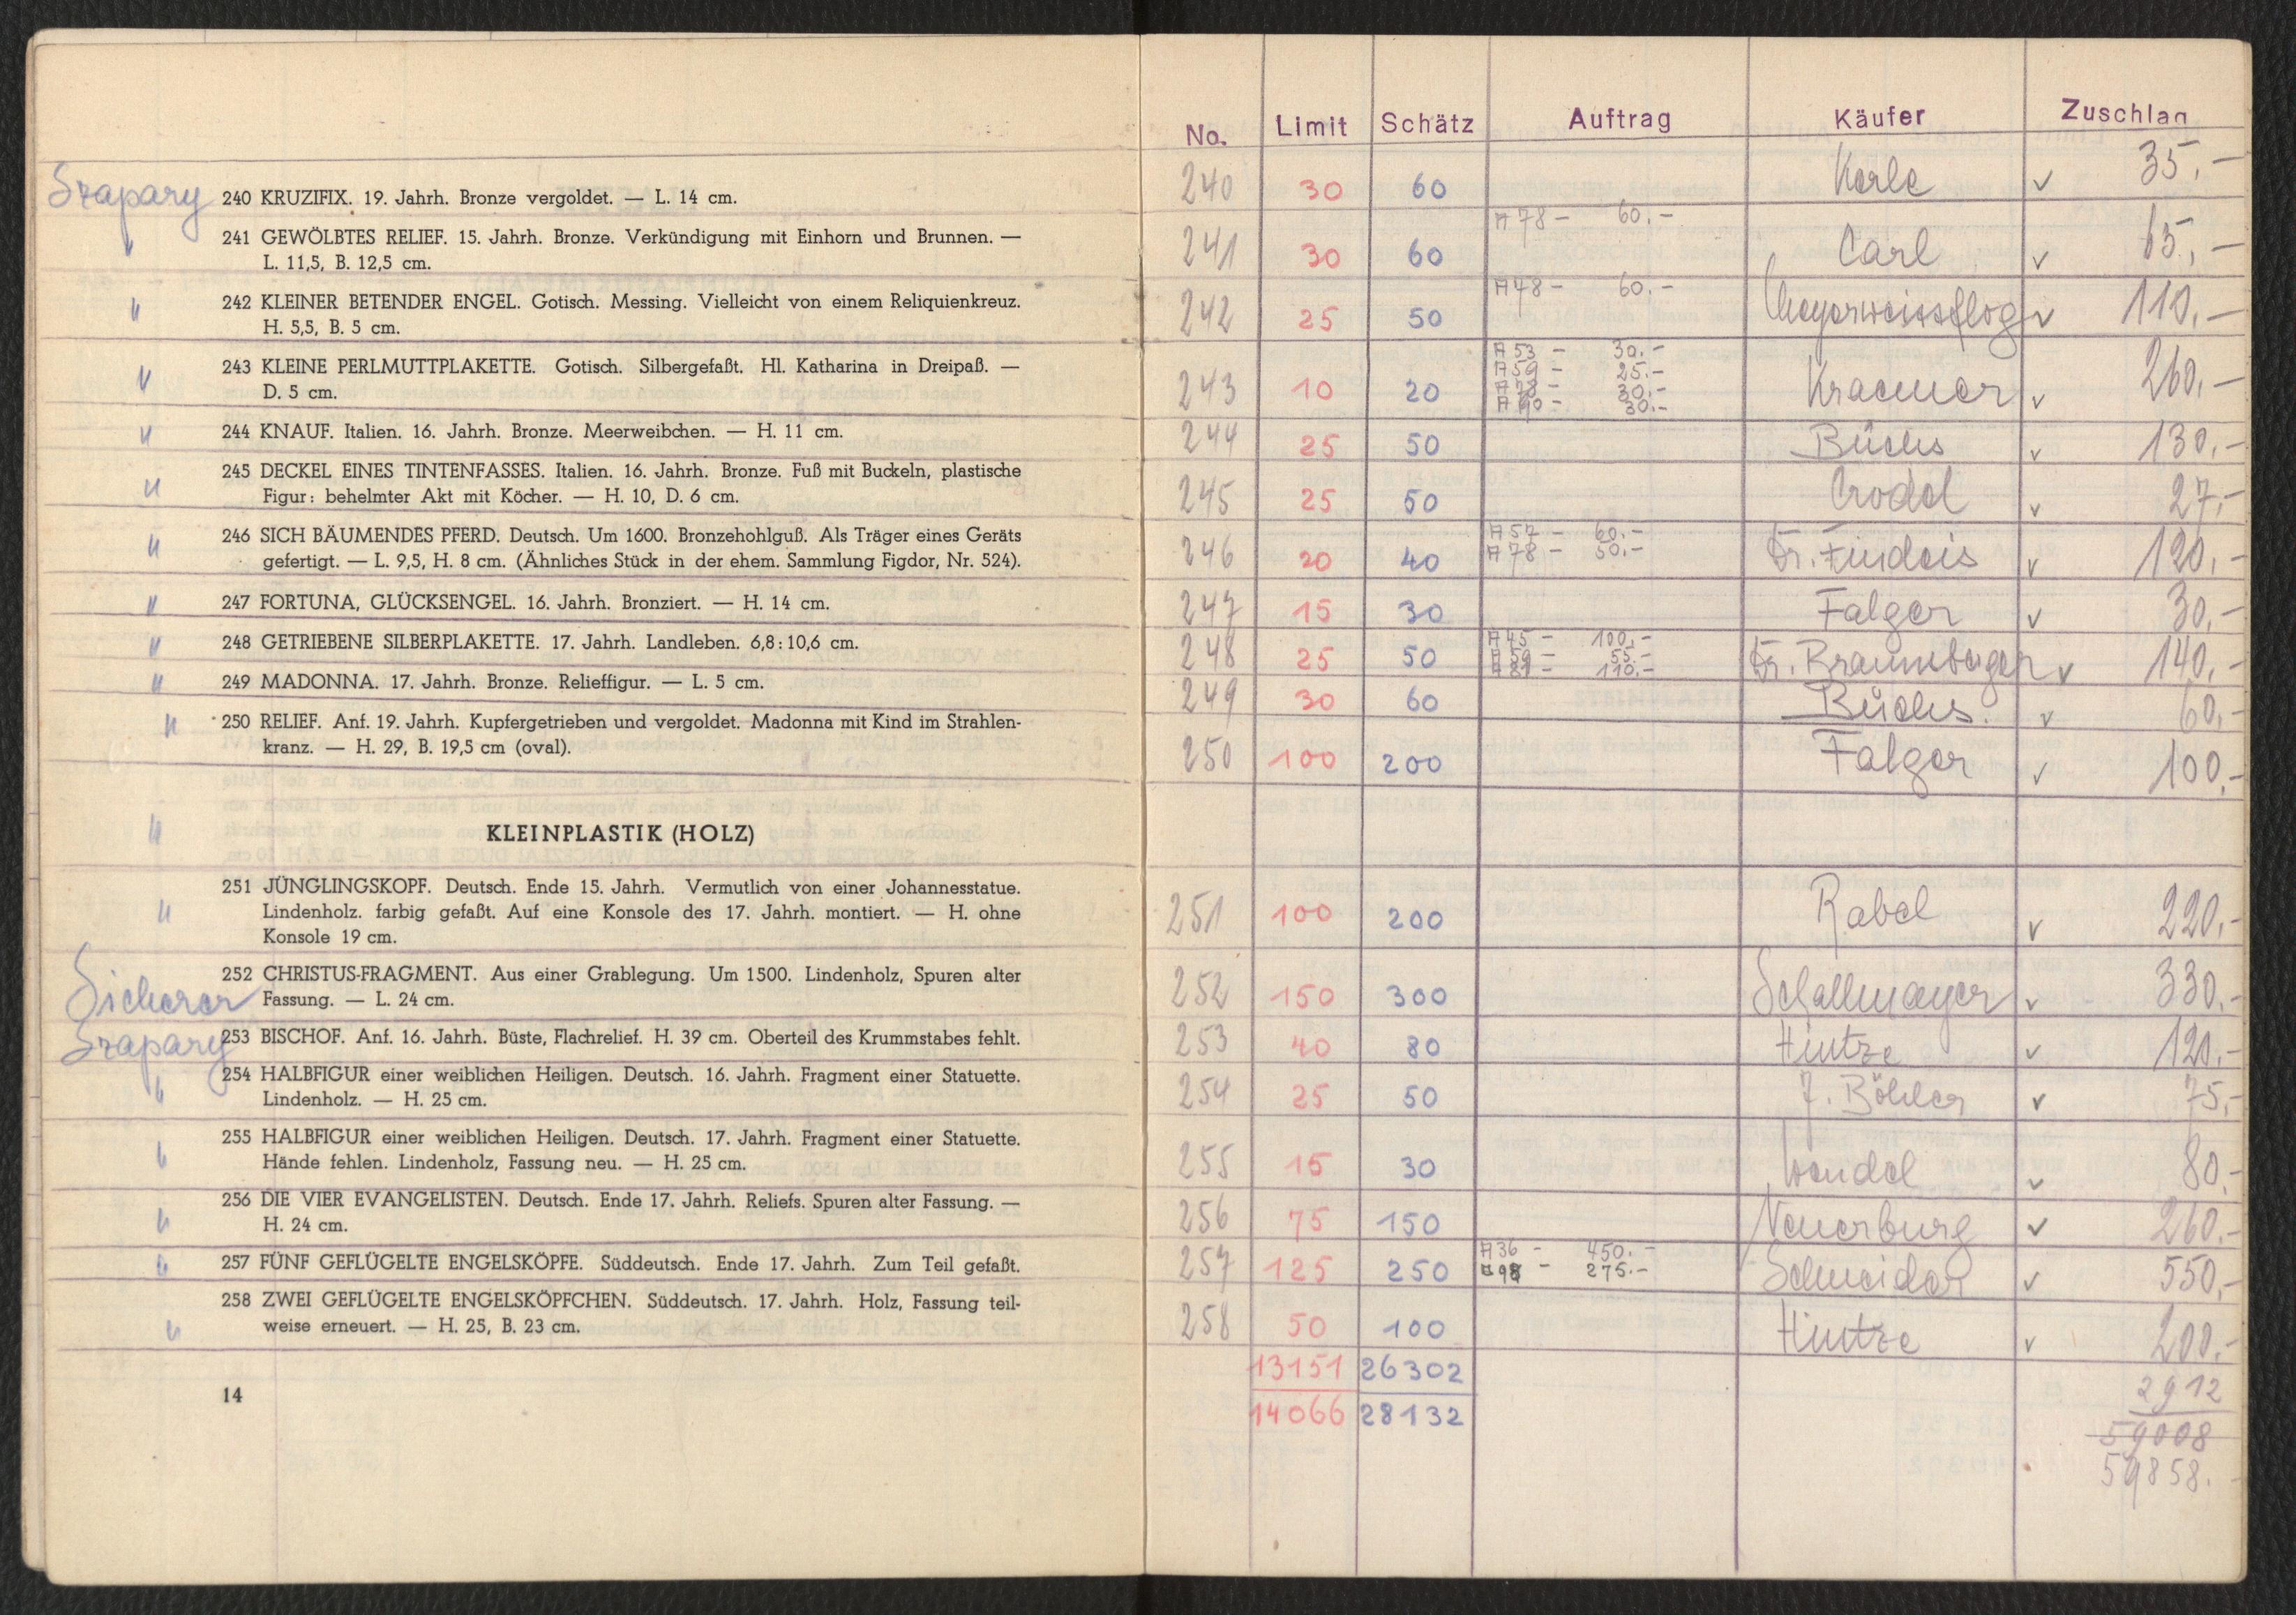 Szapary 240 KRUZIFIX. 19. Jahrh. Bronze vergoldet. — L. 14 cm.
" 241 GEWÖLBTES RELIEF. 15. Jahrh. Bronze. Verkündigung mit Einhorn und Brunnen. —
L. 11,5, B. 12,5 cm.
" 242 KLEINER BETENDER ENGEL. Gotisch. Messing. Vielleicht von einem Reliquienkreuz.
H. 5,5, B. 5 cm.
" 243 KLEINE PERLMUTTPLAKETTE. Gotisch. Silbergefaßt. Hl. Katharina in Dreipaß. —
D. 5 cm.
" 244 KNAUF. Italien. 16. Jahrh. Bronze. Meerweibchen. — H. 11 cm.
" 245 DECKEL EINES TINTENFASSES. Italien. 16. Jahrh. Bronze. Fuß mit Buckeln, plastische
Figur: behelmter Akt mit Köcher. — H. 10, D. 6 cm.
" 246 SICH BÄUMENDES PFERD. Deutsch. Um 1600. Bronzehohlguß. Als Träger eines Geräts
gefertigt. — L. 9,5, H. 8 cm. (Ähnliches Stück in der ehem. Sammlung Figdor, Nr. 524).
" 247 FORTUNA, GLÜCKSENGEL. 16. Jahrh. Bronziert. — H. 14 cm.
" 248 GETRIEBENE SILBERPLAKETTE. 17. Jahrh. Landleben. 6,8:10,6 cm.
" 249 MADONNA. 17. Jahrh. Bronze. Relieffigur. — L. 5 cm.
" 250 RELIEF. Anf. 19. Jahrh. Kupfergetrieben und vergoldet. Madonna mit Kind im Strahlen-
kranz. — H. 29, B. 19,5 cm (oval).
" KLEINPLASTIK (HOLZ)
251 JÜNGLINGSKOPF. Deutsch. Ende 15. Jahrh. Vermutlich von einer Johannesstatue.
" Lindenholz. farbig gefaßt. Auf eine Konsole des 17. Jahrh. montiert. — H. ohne
Konsole 19 cm.
252 CHRISTUS-FRAGMENT. Aus einer Grablegung. Um 1500. Lindenholz, Spuren alter
Sicherer Fassung. — L. 24 cm.
Szapary 253 BISCHOF. Anf. 16. Jahrh. Büste, Flachrelief. H. 39 cm. Oberteil des Krummstabes fehlt.
" 254 HALBFIGUR einer weiblichen Heiligen. Deutsch. 16. Jahrh. Fragment einer Statuette.
Lindenholz. — H. 25 cm.
" 255 HALBFIGUR einer weiblichen Heiligen. Deutsch. 17. Jahrh. Fragment einer Statuette.
Hände fehlen. Lindenholz, Fassung neu. — H. 25 cm.
" 256 DIE VIER EVANGELISTEN. Deutsch. Ende 17. Jahrh. Reliefs. Spuren alter Fassung. —
H. 24 cm.
" 257 FÜNF GEFLÜGELTE ENGELSKÖPFE. Süddeutsch. Ende 17. Jahrh. Zum Teil gefaßt.
" 258 ZWEI GEFLÜGELTE ENGELSKÖPFCHEN. Süddeutsch. 17. Jahrh. Holz, Fassung teil-
weise erneuert. — H. 25, B. 23 cm.
14
No. Limit Schätz Auftrag Käufer Zuschlag
240 30 60 Kerle v 35,-
241 30 60 A 78 - 60.- Carl v 65,-
242 25 50 A 48 - 60.- Meyerweissflog v 110,-
243 10 20 A 53 - 30.- Kraemer v 260,-
A 59 - 25.-
A 78 - 30.-
A 90 - 30.-
244 25 50 Büchs v 130,-
245 25 50 Crodel v 27,-
246 20 40 A 57 - 60.- Fr. Findeis v 120,-
A 78 - 50.-
247 15 30 Falger v 30,-
248 25 50 A 45 - 100.- Dr. Braunsberger v 140,-
A 59 - 55.-
A 81 - 110.-
249 30 60 Büchs. v 60,-
250 100 200 Falger v 100,-
251 100 200 Rabel v 220,-
252 150 300 Schallmayer v 330,-
253 40 80 Hintze v 120,-
254 25 50 J. Böhler v 75,-
255 15 30 Wendel v 80,-
256 75 150 Neuerburg v 260,-
257 125 250 A 36 - 450.- Schneider v 550,-
A 98 - 275.-
258 50 100 Hintze v 200,-
13151 26302 2912
14066 28132 59008
59858.